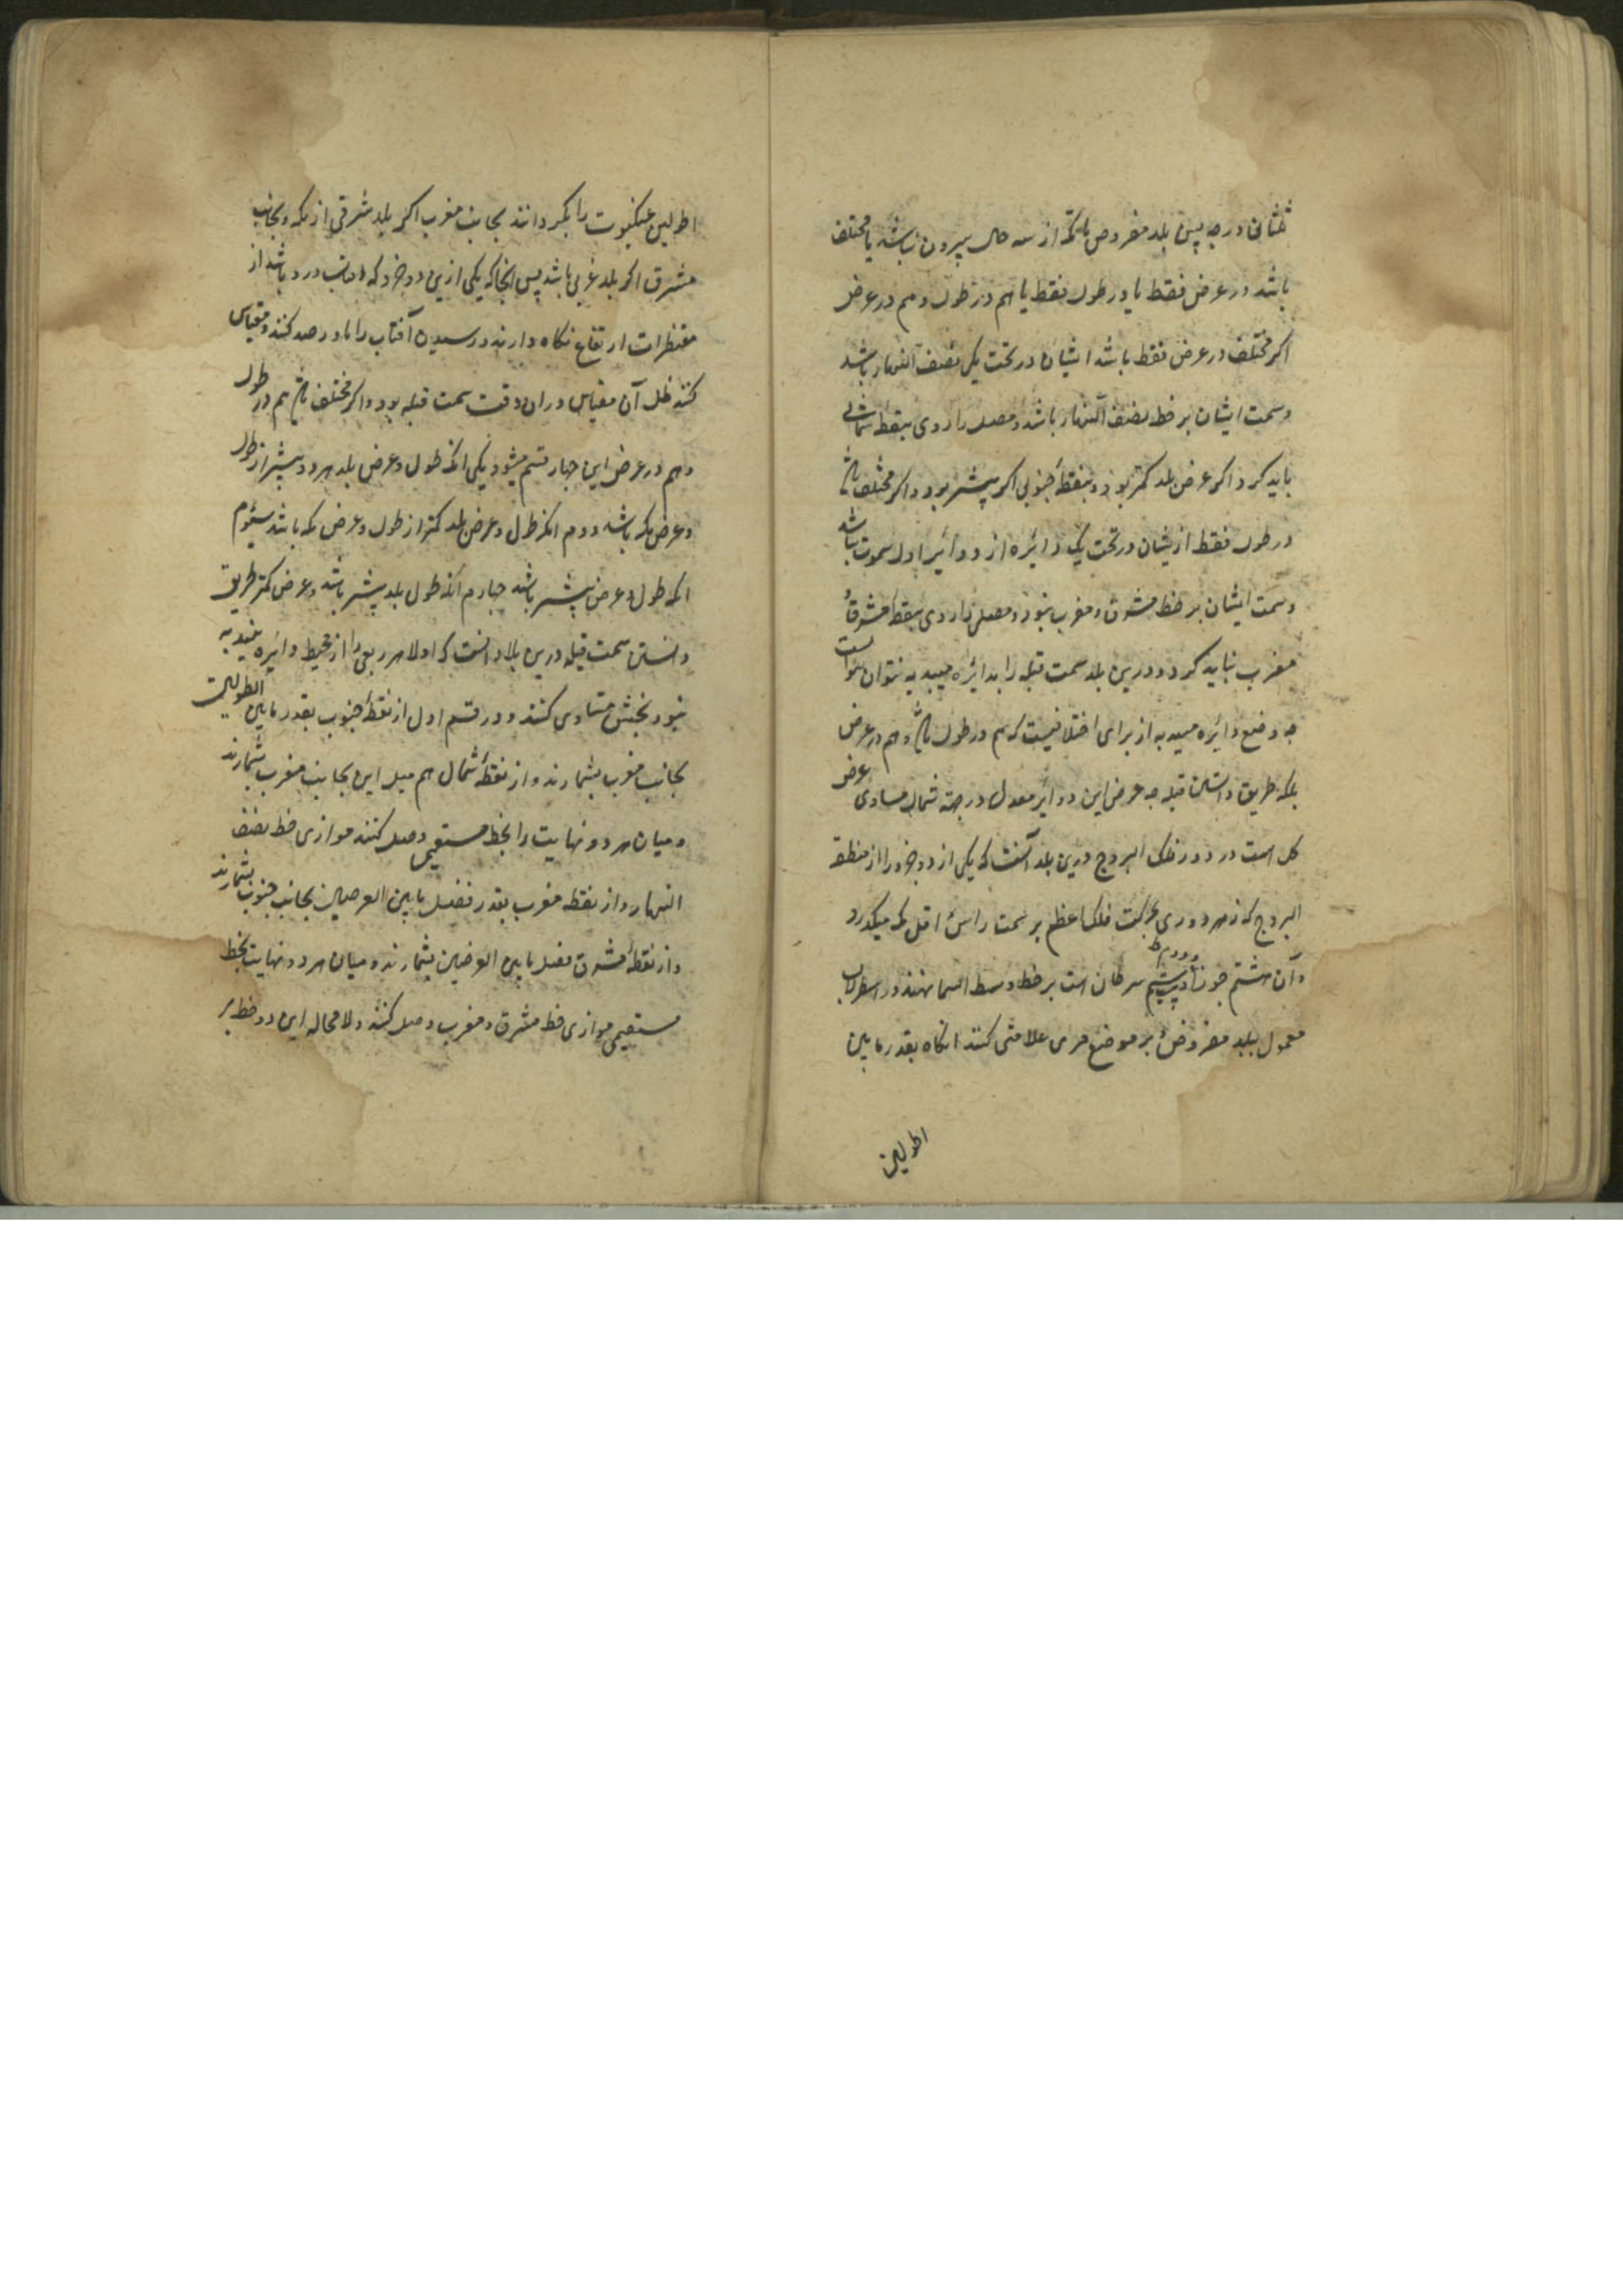 ثلثانی درجه پس بلد مفروض با مکه از سه حال بیرون نباشد یا مختلف
باشد در عرض فقط یا در طول فقط یا هم در طول و هم در عرض
اکر مختلف در عرض فقط باشد ایشان در تحت یک نصف النهار باشد
و سمت ایشان بر خط نصف النهار باشد و مصلی را روی بنقطهٔ شمالی
باید کرد اکر عرض بلد کمتر بود و بنقطهٔ جنوبی اکر بیشتر بود و اکر مختلف
در طول فقط ازیشان در تحت یک دائره از دوائیر اول سموت نباشد
و سمت ایشان بر خط مشرق و مغرب نبود و مصلی را روی بنقطهٔ مشرق
مغرب نباید کرد و درین بلد سمت قبله را بدائره نتوان
چه وضع دائره از برای اختلافیست که هم در طول و هم در عرض
بلکه طریق دانستن قبله چه عرض این دوائر معدل در جهة شمال مساوی عرض
کل است در دور فلک البروج درین بلد آنست که یکی از دو جزو را از منطقة
البروج که در هر دوری بحرکت فلک اعظم بر سمت راس اهل مکه میکذرد
و آن هشتم جوزا و بیست سیم سرطان است بر خط وسط السما نهند در اسطرلاب
معمول ببلد مفروض و بر موضع مری علامتی کنند انکاه بقدر مابین
الطولین
الطولین عنکبوت را بکردانند بجانب مغرب اکر بلد شرقی از مکه و بجانب
مشرق اکر بلد غربی باشد پس انجا که یکی ازین دو جزو که افتاب درو باشد از
مقنطرات ارتفاع نکاه دارند و رسیدن آفتاب را بآن رصد کنند و مقیاس
کنند ظل آن مقیاس در ان وقت سمت قبله بود و اکر مختلف هم در طول
و هم در عرض این چهار قسم میشود یکی انکه طول و عرض بلد هر دو بیشتر از طول
و عرض مکه باشد دوم انکه طول و عرض بلد کمتر از طول و عرض مکه باشد سیوم
انکه طول و عرض بیشتر باشد چهارم آنکه طول بلد بیشتر باشد و عرض کمتر طریق
دانستن سمت قبله درین بلاد انست که اولا هر ربعی را از محیط دائره
نود بخش متساوی کنند و در قسم اول از نقطهٔ جنوب بقدر مابین الطولین
بجانب مغرب بشمارند و از نقطهٔ شمال هم مثل این بجانب مغرب بشمارند
و میان هر دو نهایت را بخط مستقیم وصل کنند موازی خط نصف
النهار و از نقطه مغرب بقدر فضل مابین العرضین بجانب جنوب بشمارند
و از نقطهٔ مشرق فضل مابین العرضین بشمارند و میان هر دو نهایت بخط
مستقیم موازی خط مشرق و مغرب وصل کنند و لا محاله این دو خط بر